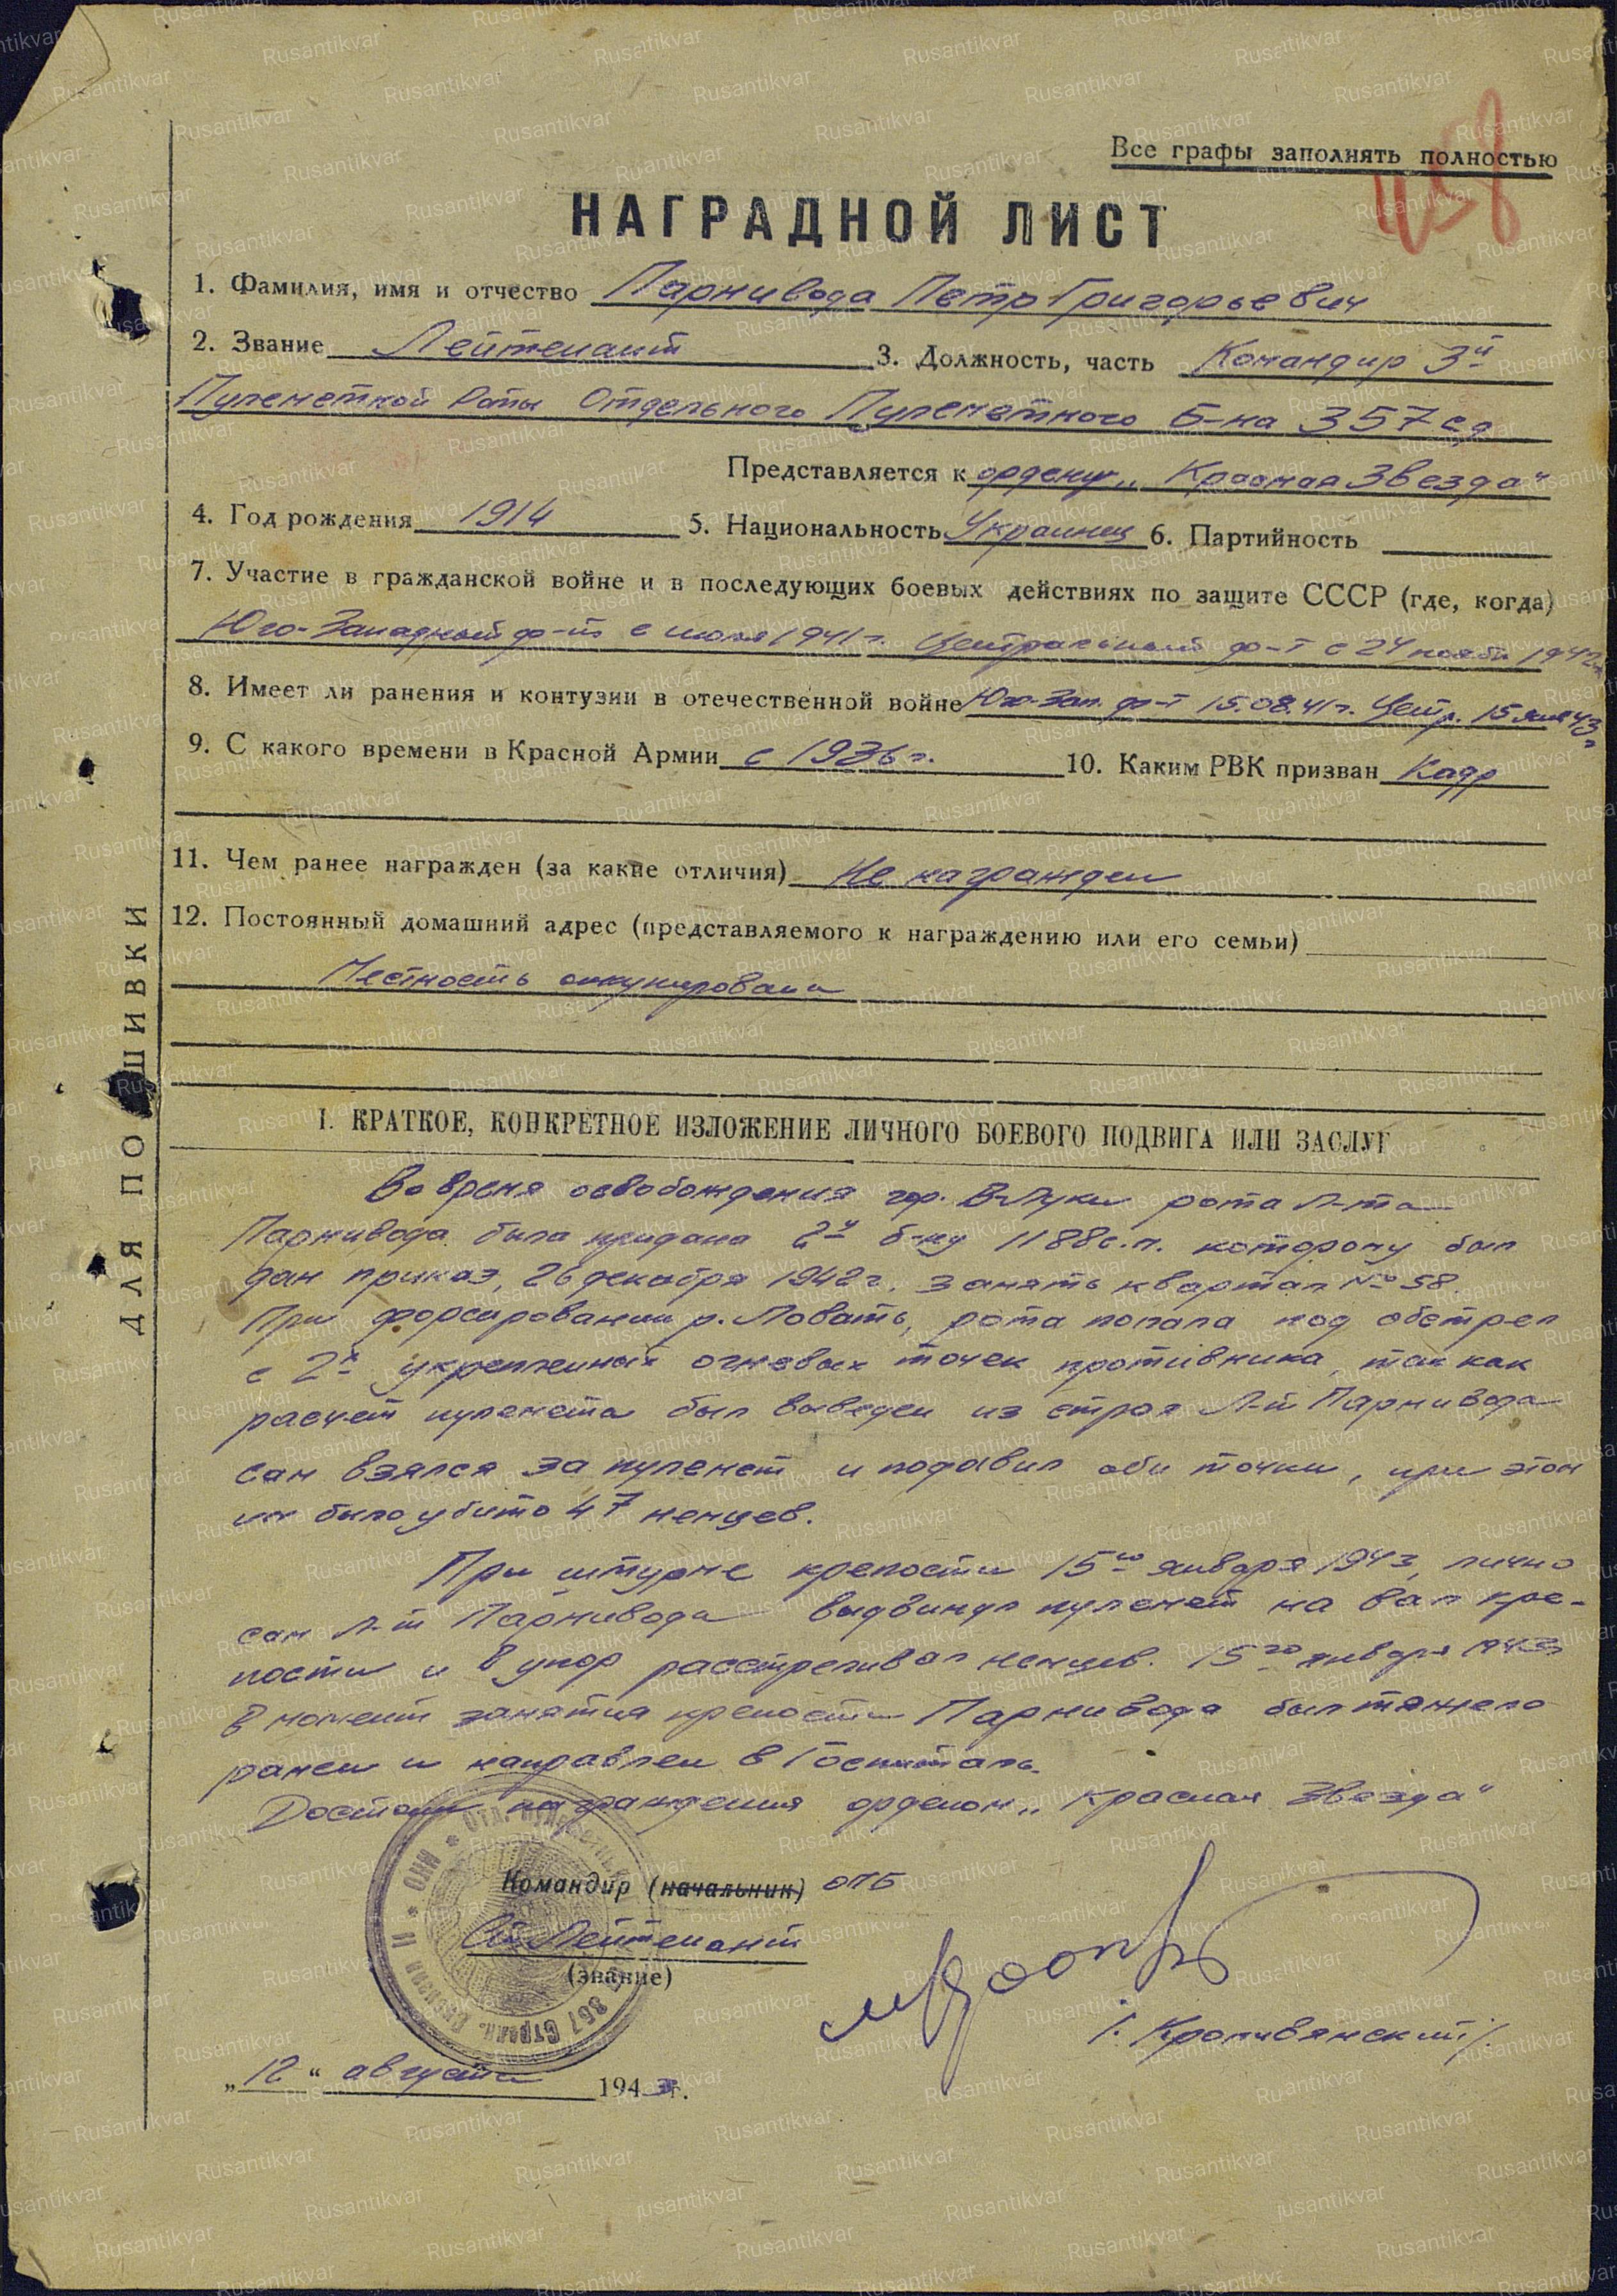 Все графы заполнять полностью
НАГРАДНОЙ ЛИСТ
1. Фамилия, имя и отчество Парнивода Петр Григорьевич
2. Звание Лейтенант 3. Должность, часть Командир 3й
Пулеметной Роты Отдельного Пулеметного Б-на 357 сд
Представляется к ордену „Красная Звезда"
4. Год рождения 1914 5. Национальность Украинец 6. Партийность
7. Участие в гражданской войне и в последующих боевых действиях по защите СССР (где, когда)
Юго-Западный ф-т с июля 1941 г. Центральный ф-т с 24 нояб 1942
8. Имеет ли ранения и контузии в отечественной войне Юго-Зап. ф-т 15.08.41 г. Центр. 15 янв 43 г
9. С какого времени в Красной Армии с 1936 г. 10. Каким РВК призван Кадр
11. Чем ранее награжден (за какие отличия) Не награжден
12. Постоянный домашний адрес (представляемого к награждению или его семьи)
Местность оккупирована
ДЛЯ ПОДШИВКИ
I. КРАТКОЕ, КОНКРЕТНОЕ ИЗЛОЖЕНИЕ ЛИЧНОГО БОЕВОГО ПОДВИГА ИЛИ ЗАСЛУГ
Во время освобождения гор. В-Луки рота Л-та
Парнивода была придана 2у б-ну 1188 с.п. которому был
дан приказ, 26 декабря 1942 г. занять квартал № 58.
При форсировании р. Ловать, рота попала под обстрел
с 2х укрепленных огневых точек противника, так как
расчет пулемета был выведен из строя Л-т Парнивода
сам взялся за пулемет и подавил оби точки, при этом
им было убито 47 немцев.
При штурме крепости 15го января 1943, лично
сам л-т Парнивода выдвинул пулемет на вал кре-
пости и в упор расстреливал немцев. 15го января 1943
в момент занятия крепости Парнивода был тяжело
ранен и направлен в Госпиталь.
Достоин награждения орденом „Красная Звезда"
Командир (начальник) ОПБ
Ст Лейтенант
(звание)
/. Кропивянский /.
„12" августа 1943 г.
357 Стрелк. Дивизия
НКО
Rusantikvar